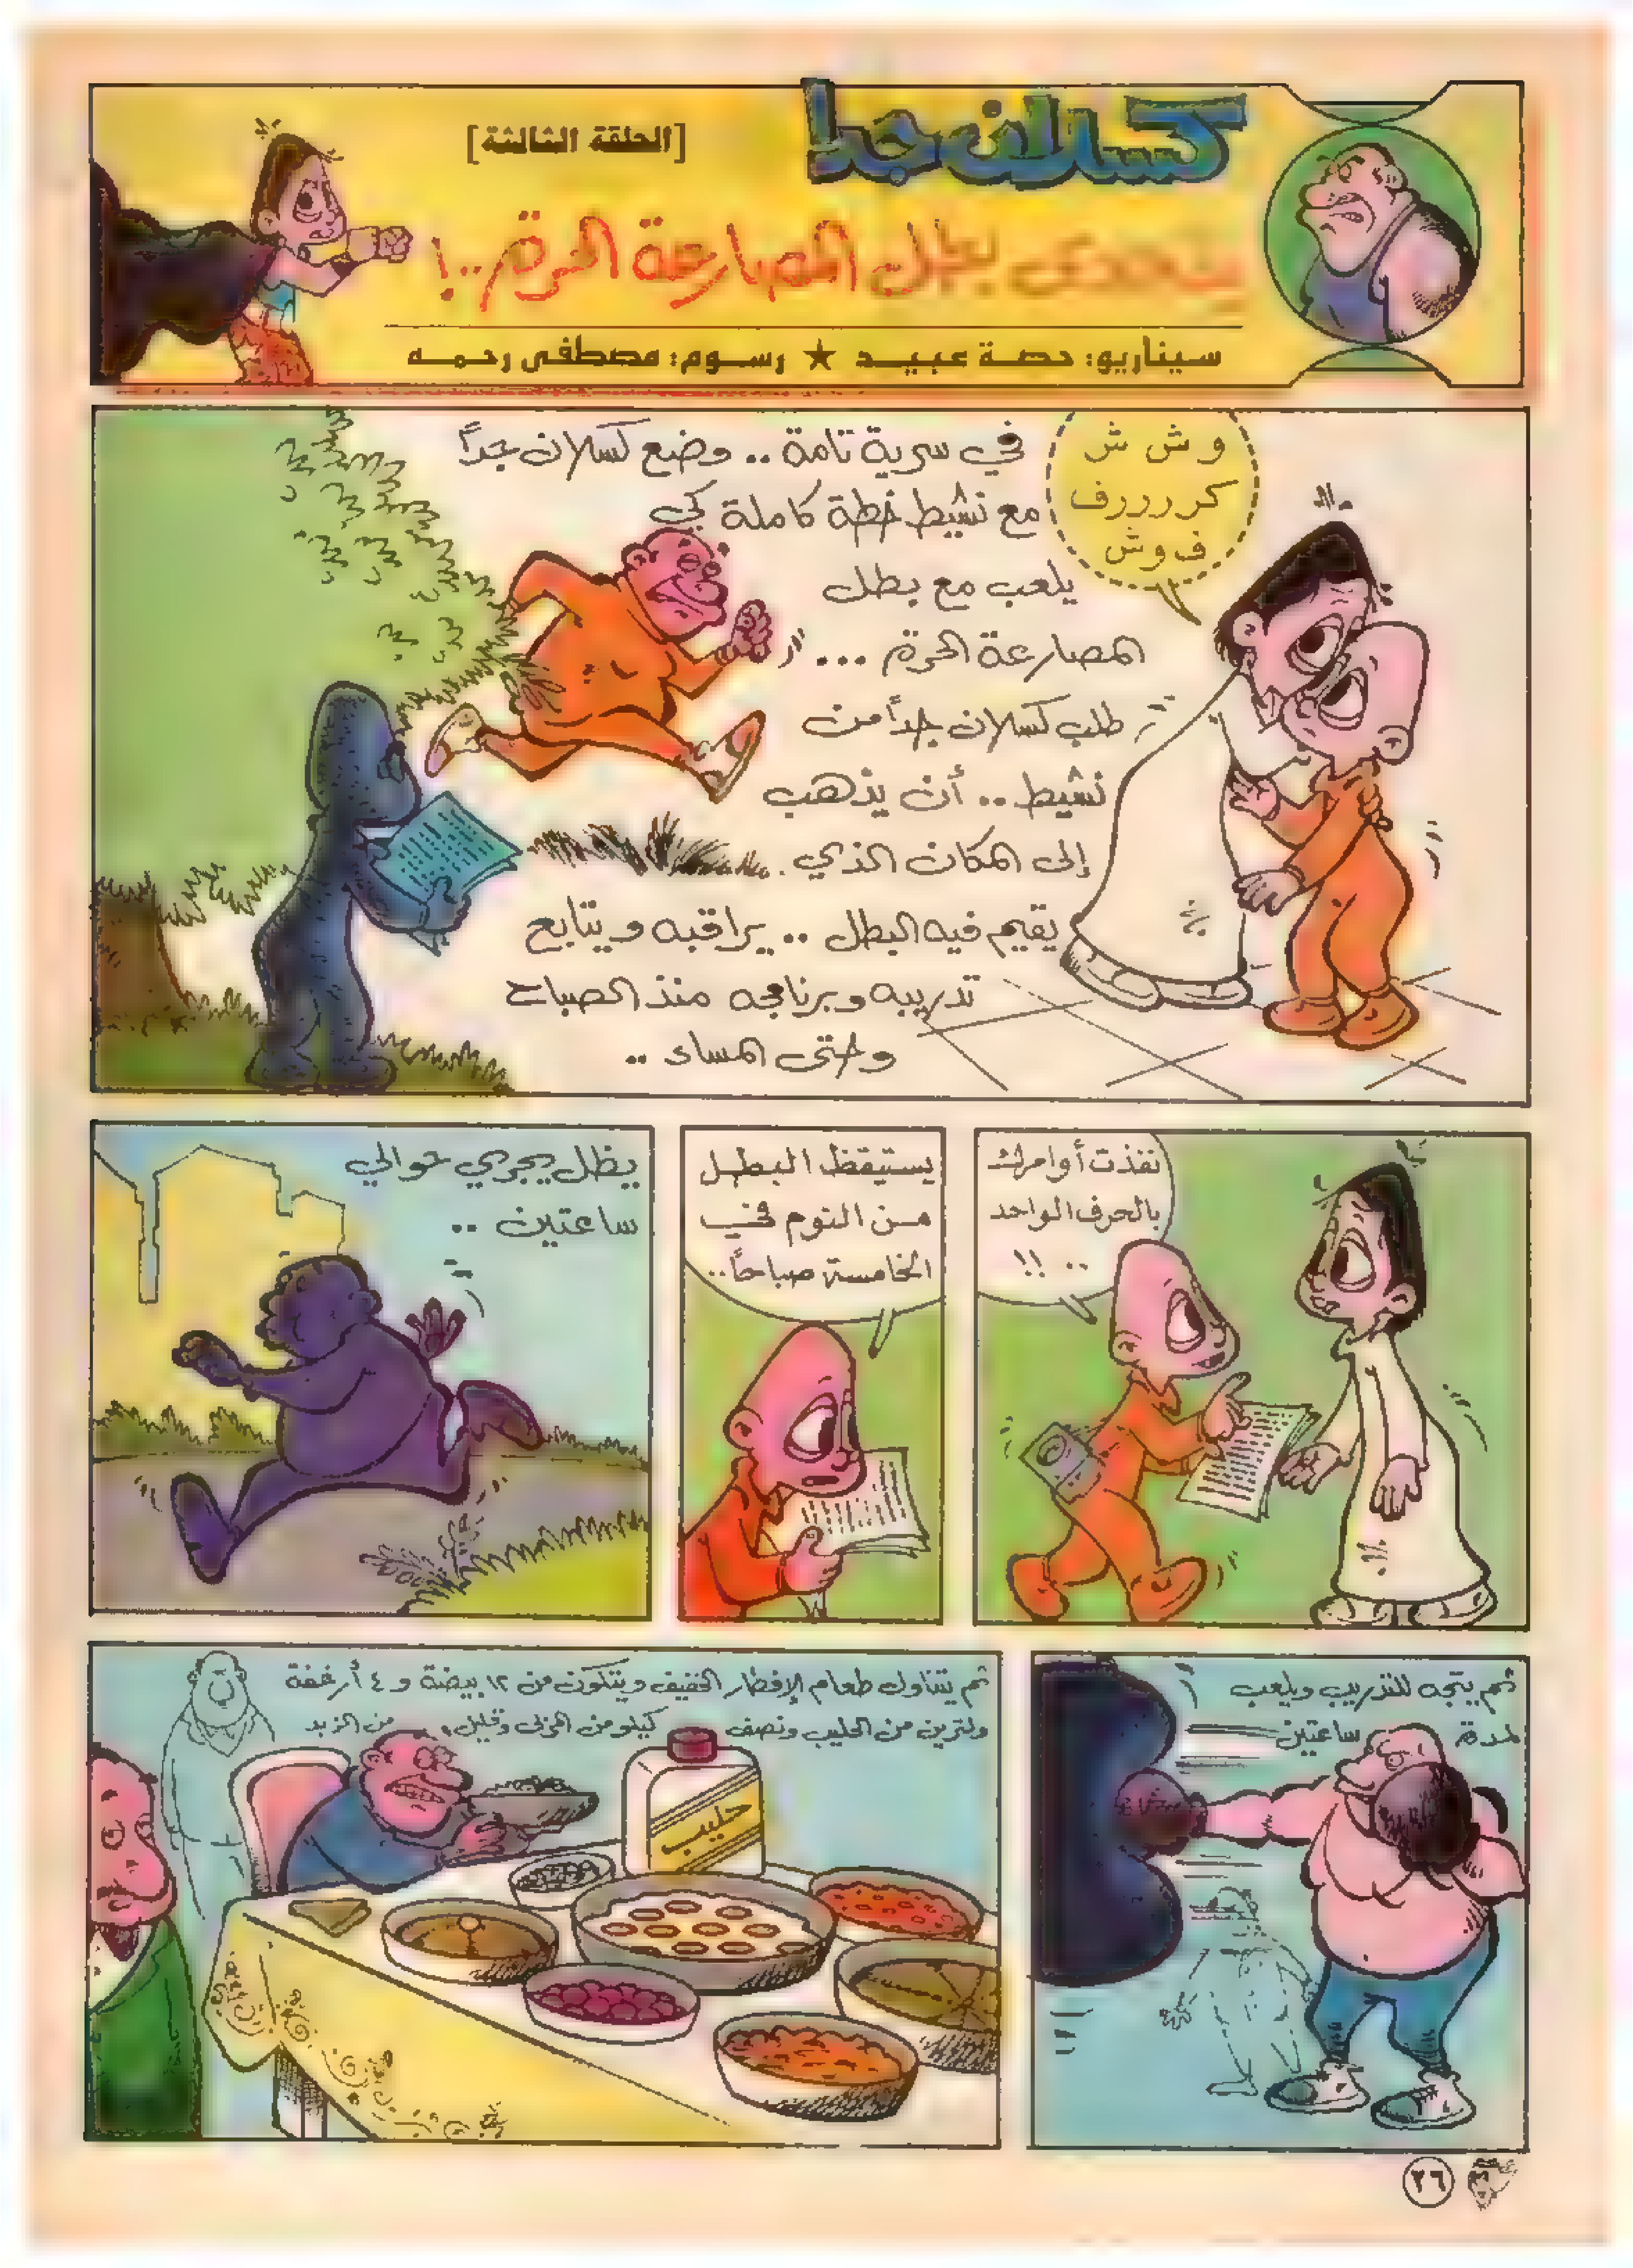 كسلان جدا
[الحلقة الثالثة]
يتحدى بطل المصارعة الحرة..!
سيناريو: حصة عبيد ★ رسوم: مصطفى رحمه
وش ش
كررررف
فوش
في سرية تامة .. وضع كسلان جداً
مع نشيط خطة كاملة كي
يلعب مع بطل
المصارعة الحرة ...
طلب كسلان جداً من
نشيط .. أن يذهب
إلى المكان الذي
يقيم فيه البطل .. يراقبه ويتابع
تدريبه وبرنامجه منذ الصباح
وحتى المساء ..
نفذت أوامرك
بالحرف الواحد
.. !!
يستيقظ البطل
من النوم في
الخامسة صباحاً..
يظل يجري حوالي
ساعتين ..
ثم يتجه للتدريب ويلعب
لمدة ساعتين
ثم يتناول طعام الإفطار الخفيف ويتكون من ١٢ بيضة و ٤ أرغفة
ولترين من الحليب ونصف كيلو من المربى وقليل من الزبد
حليب
٢٦